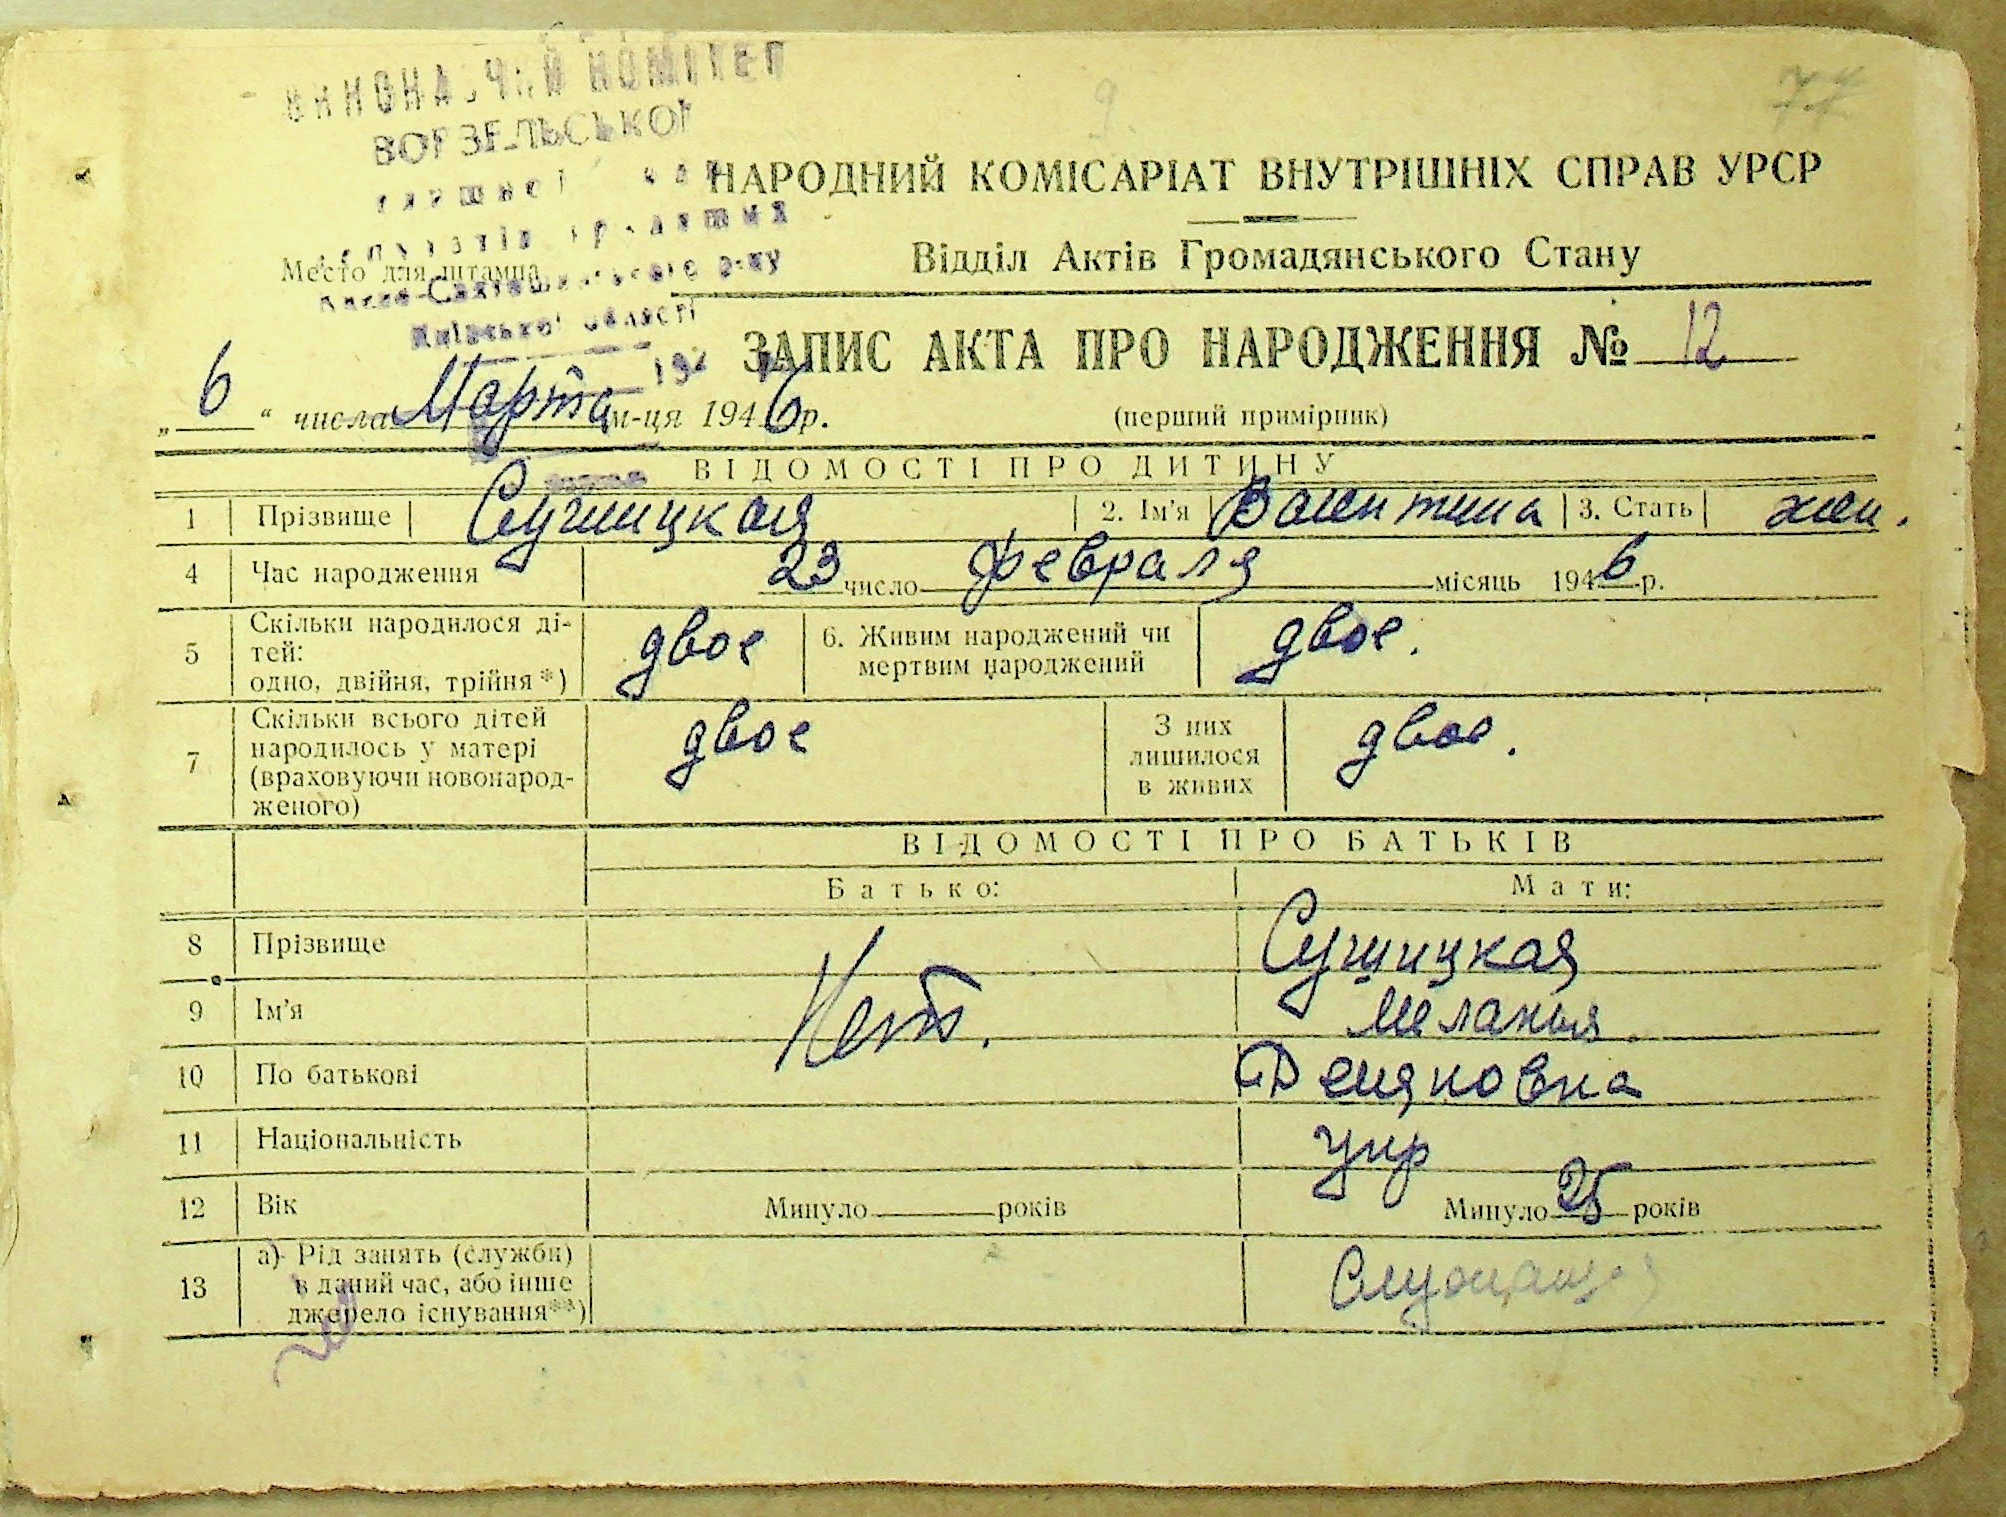 ВИКОНАВЧИЙ КОМІТЕТ
ВОРЗЕЛЬСЬКОЇ
77
НАРОДНИЙ КОМІСАРІАТ ВНУТРІШНІХ СПРАВ УРСР
Відділ Актів Громадянського Стану
Место для штампа
Київської області
194
ЗАПИС АКТА ПРО НАРОДЖЕННЯ № 12
„ 6 “ числа Марта м-ця 1946 р.
(перший примірник)
ВІДОМОСТІ ПРО ДИТИНУ
1 Прізвище Сущицкая 2. Ім'я Валентина 3. Стать жен.
4 Час народження 23 число февраля місяць 1946 р.
5 Скільки народилося ді-
тей:
одно, двійня, трійня*) двое 6. Живим народжений чи
мертвим народжений двое.
7 Скільки всього дітей
народилось у матері
(враховуючи новонарод-
женого) двое З них
лишилося
в живих двое.
ВІДОМОСТІ ПРО БАТЬКІВ
Батько: Мати:
8 Прізвище Сущицкая
9 Ім'я Нет. Мелания
10 По батькові Демяновна
11 Національність укр
12 Вік Минуло років Минуло 25 років
13 а) Рід занять (служби)
в даний час, або інше
джерело існування**) Служащая